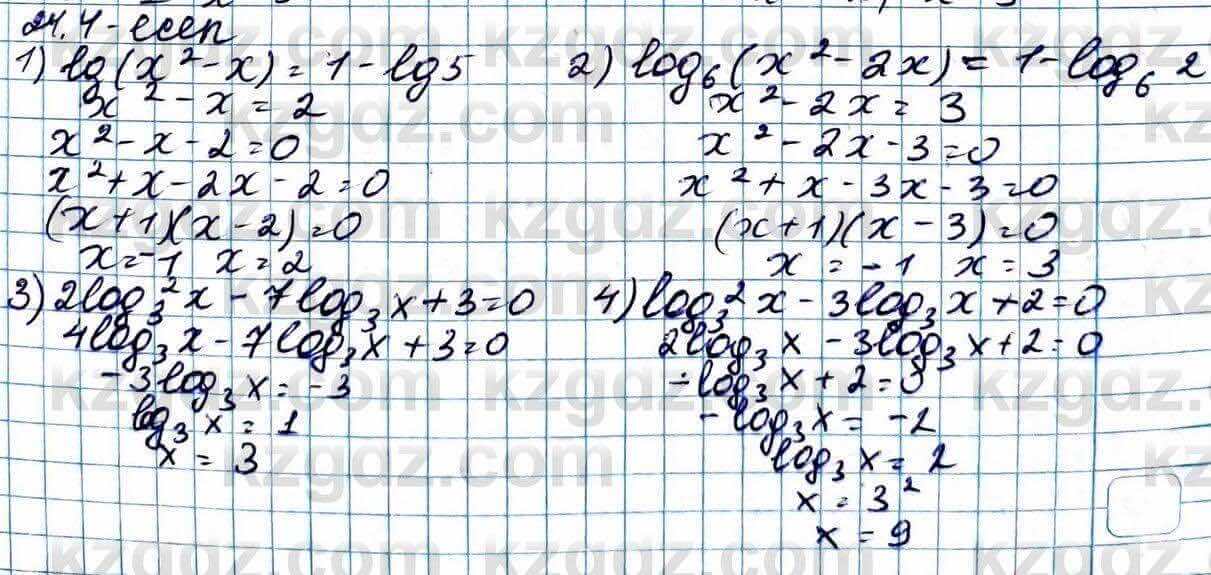 24.4-есеп
1) lg(x²-x)=1-lg5
x²-x=2
x²-x-2=0
x²+x-2x-2=0
(x+1)(x-2)=0
x=-1 x=2
2) log₆(x²-2x)=1-log₆2
x²-2x=3
x²-2x-3=0
x²+x-3x-3=0
(x+1)(x-3)=0
x=-1 x=3
3) 2log₃²x-7log₃x+3=0
4log₃x-7log₃x+3=0
-3log₃x=-3
log₃x=1
x=3
4) log₃²x-3log₃x+2=0
2log₃x-3log₃x+2=0
-log₃x+2=0
-log₃x=-2
log₃x=2
x=3²
x=9
kzgdz.com